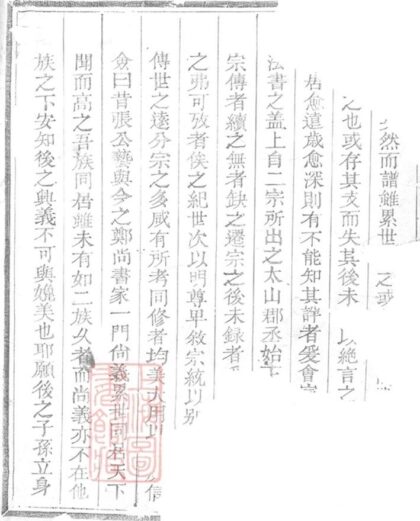 然而譜雖累世 之或
之也或存其支而失其後未 以絶言之
居愈遠歳愈深則有不能知其詳者爰會
法書之蓋上自二宗所出之太山郡丞始下
宗傳者續之無者缺之遷宗之後未録者
之弗可攷者俟之紀世次以明尊卑敘宗統以别
傳世之遠分宗之多咸有所考同修者均美大用以 信
僉曰昔張公藝與今之鄭尚書家一門尚義累世同居天下
聞而高之吾族同居雖未有如二族久者而尚義亦不在他
族之下安知後之興義不可與媲美也耶願後之子孫立身